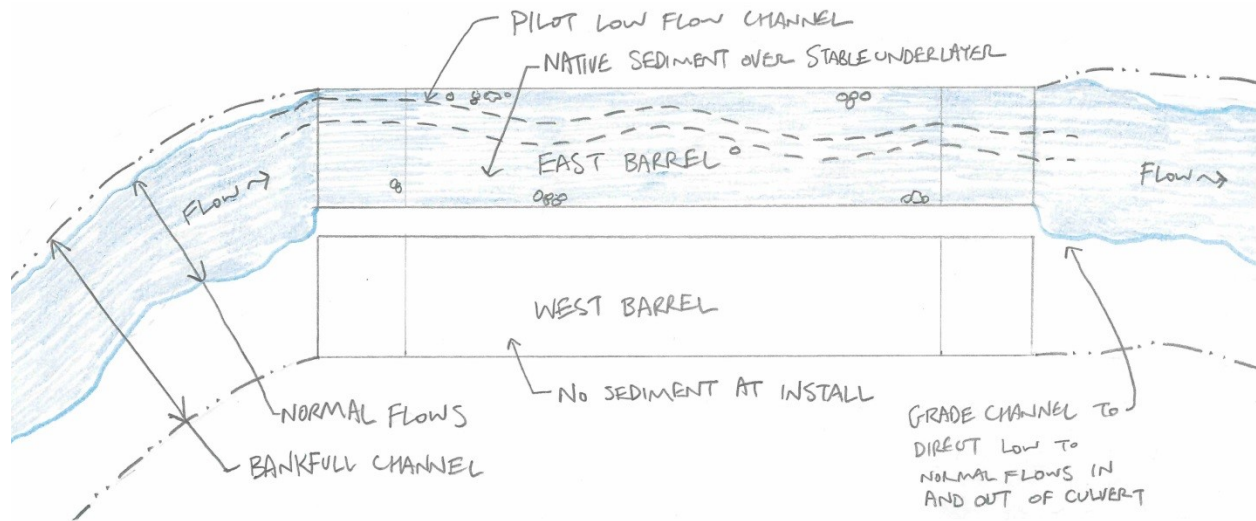 PILOT LOW FLOW CHANNEL
NATIVE SEDIMENT OVER STABLE UNDERLAYER
EAST BARREL
FLOW
FLOW
WEST BARREL
NO SEDIMENT AT INSTALL
NORMAL FLOWS
BANKFULL CHANNEL
GRADE CHANNEL TO
DIRECT LOW TO
NORMAL FLOWS IN
AND OUT OF CULVERT